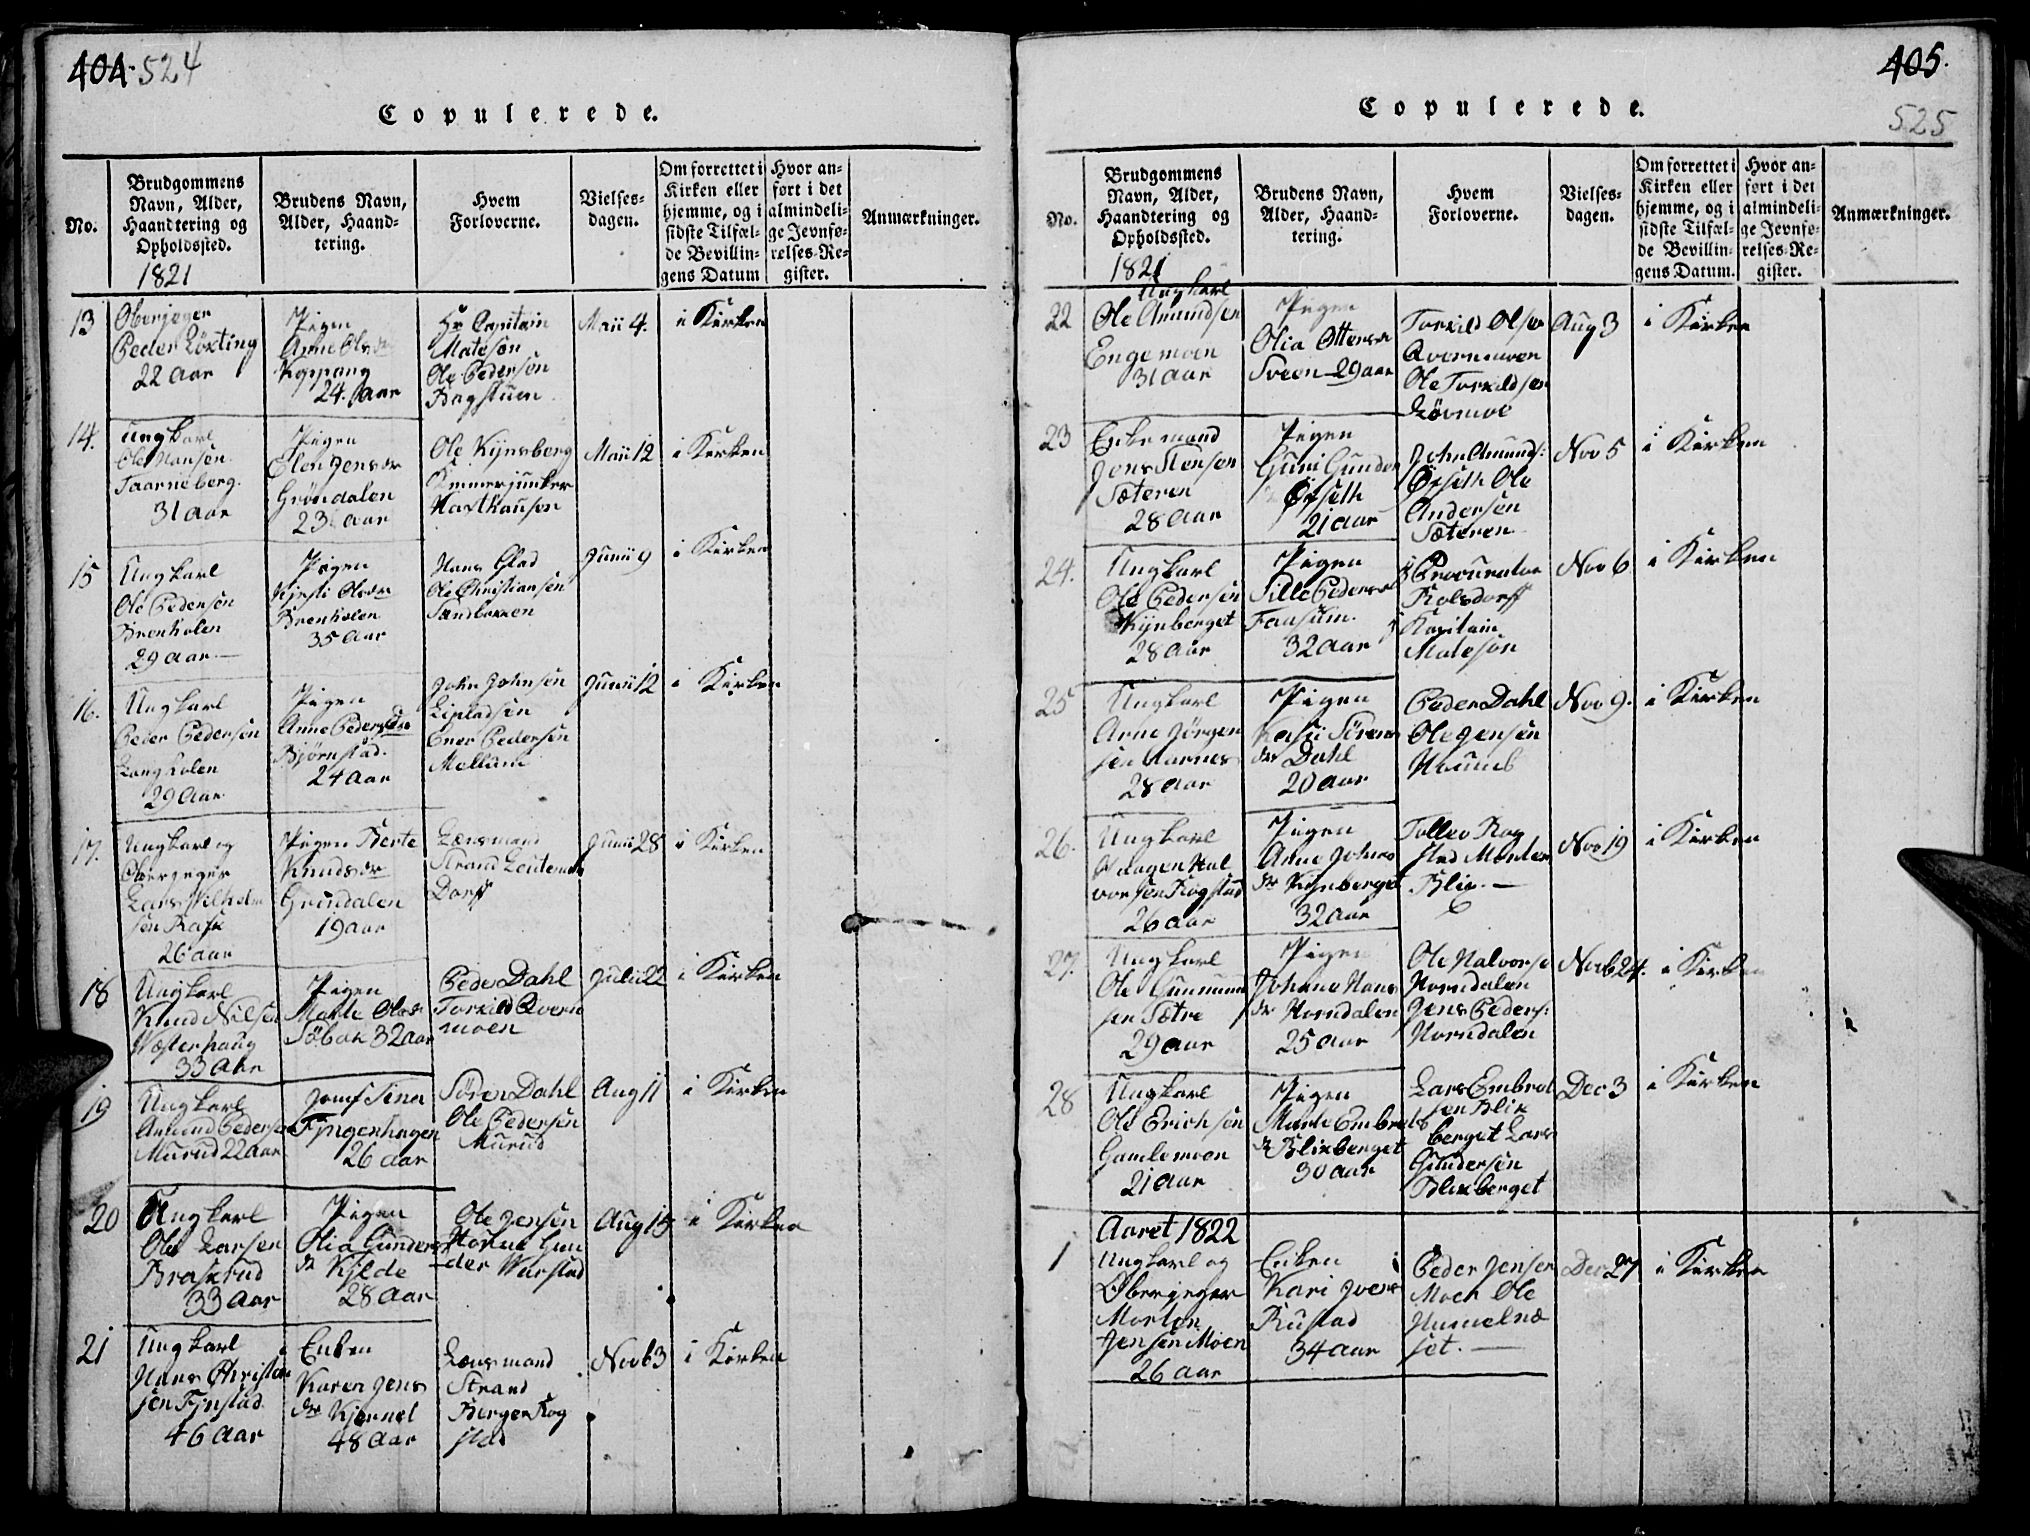 404. 524
Copulerede.
No.
Brudgommens
Navn, Alder,
Haandtering og
Opholdssted.
Brudens Navn,
Alder, Haand-
tering.
Hvem
Forloverne.
Vielses-
dagen.
Om forrettet i
Kirken eller
hjemme, og i
sidste Tilfæl-
de Bevillin-
gens Datum
Hvor an-
ført i det
almindeli-
ge Jevnfø-
relses-Re-
gister.
Anmærkninger.
1821
13
Oberjeger
Peder
22 Aar
Pigen
Anne Olsdr
Koppang
24. Aar
Hr Capitain
Matesøn
Ole Pedersøn
Bagstuen
Maii 4.
i Kirken
14.
Ungkarl
Ole Hansen
Taarneberg.
31 Aar
Pigen
Elen Jensdr
Grøndalen
23 Aar
Ole Kynsberg
Kamerjunker
Haxthausen
Maii 12
i Kirken
15
Ungkarl
Ole Pedersøn
Brenholen
29 Aar —
Pigen
Kjersti Olsdr
Brenholen
35 Aar
Hans Glad
Ole Christiansen
Sandbakken
Junii 9
i Kirken
16.
Ungkarl
Peder Pedersøn
Langholen
29 Aar
Pigen
Anne Pedersdr
Bjørnstad.
24 Aar
John Johnsen
Ener Pedersøn
Mellum
Junii 12
i Kirken
17.
Ungkarl og
Oberjeger
Lars Wilhelm
sen Rask
26 aar
Pigen Berte
Knudsdr
Grundalen
19 aar
Lænsmand
Strand Leutenant
Dorff
Junii 28
i Kirken
18
Ungkarl
Knud Nilsen
Westerhaug
33 Aar
Pigen
Marte Olsdr
Søbak 32 Aar
Peder Dahl
Torkild Qvern
moen
Julii 22
i Kirken
19
Ungkarl
Amund Pedersen
Murud 22 Aar
Jomf Sina
Fyngenhagen
26 aar
Søren Dahl
Ole Pedersøn
Murud
Aug 11
i Kirken
20
Ungkarl
Ole Larsen
Braskrud
33 Aar
Pigen
Olia Gunders
dr Kjelde
28 Aar
Ole Jensøn
Stokne Gun
der Warstad
Aug 15
i Kirken
21
Ungkarl
Hans Christian
sen Fynstad
46 Aar
Enken
Karen Jens
dr Kjernet
48 Aar
Lænsmand
Strand
Berger Rog
stad
Novb 3
i Kirken
405.
525
Copulerede.
No.
Brudgommens
Navn, Alder,
Haandtering og
Opholdssted.
Brudens Navn,
Alder, Haand-
tering.
Hvem
Forloverne.
Vielses-
dagen.
Om forrettet i
Kirken eller
hjemme, og i
sidste Tilfæl-
de Bevillin-
gens Datum.
Hvor an-
ført i det
almindeli-
ge Jevnfø-
relses-Re-
gister.
Anmærkninger.
1821
22
Ungkarl
Ole Amundsen
Engemoen
31 Aar
Pigen
Olia Ottersdr
Sveen 29 aar
Torkild Olsen
Qvernmoen
Ole Torkildsen
Løvmoe
Aug 3
i Kirken
23
Enkemand
Jens Stensen
Sæteren
28 Aar
Pigen
Guni Gunders
Opseth
21 aar
John Amunds:
Opseth Ole
Andersen
Sæteren
Nov 5
i Kirken
24.
Ungkarl
Ole Pedersen
Kynberget
28 Aar
Pigen
Sille Pedersdr
Fausum.
32 aar
Procurator
Rolsdorff
Kapitain
Matesøn
Nov 6
i Kirken
25
Ungkarl
Arne Jørgen
sen Aarnes
28 Aar
Pigen
Kasii Sørens
dr Dahl
20 aar
Peder Dahl
Ole Jensen
Noumb
Nov 9.
i Kirken
26.
Ungkarl
Hagen Hal
vorsen Rogstad
26 aar
Pigen
Anne Johns
dr Kynberget
32 aar
Tollev Rog
stad Morten
Blix. —
Nov 19
i Kirken
27.
Ungkarl
Ole Gunnum
sen Sætre
29 aar
Pigen
Johane Hans
dr Horndalen
25 aar
Ole Halvorse
Horndalen
Jens Peders:
Horndalen
Novb 24.
i Kirken
28
Ungkarl
Ole Erichsøn
Gamlemoen
21 aar
Pigen
Marte Embrets
dr Blixberget
30 aar
Lars Embret
sen Blix
berget Lars
Gundersen
Blixberget
Dec 3
i Kirken
Aaret 1822
1
Ungkarl og
Oberjeger
Morten
Jensen Moen
26 aar
Enken
Kari Iversdr
Rustad
34 aar
Peder Jensen
Moen Ole
Hummelnæ
set. —
Dec 27
i Kirken